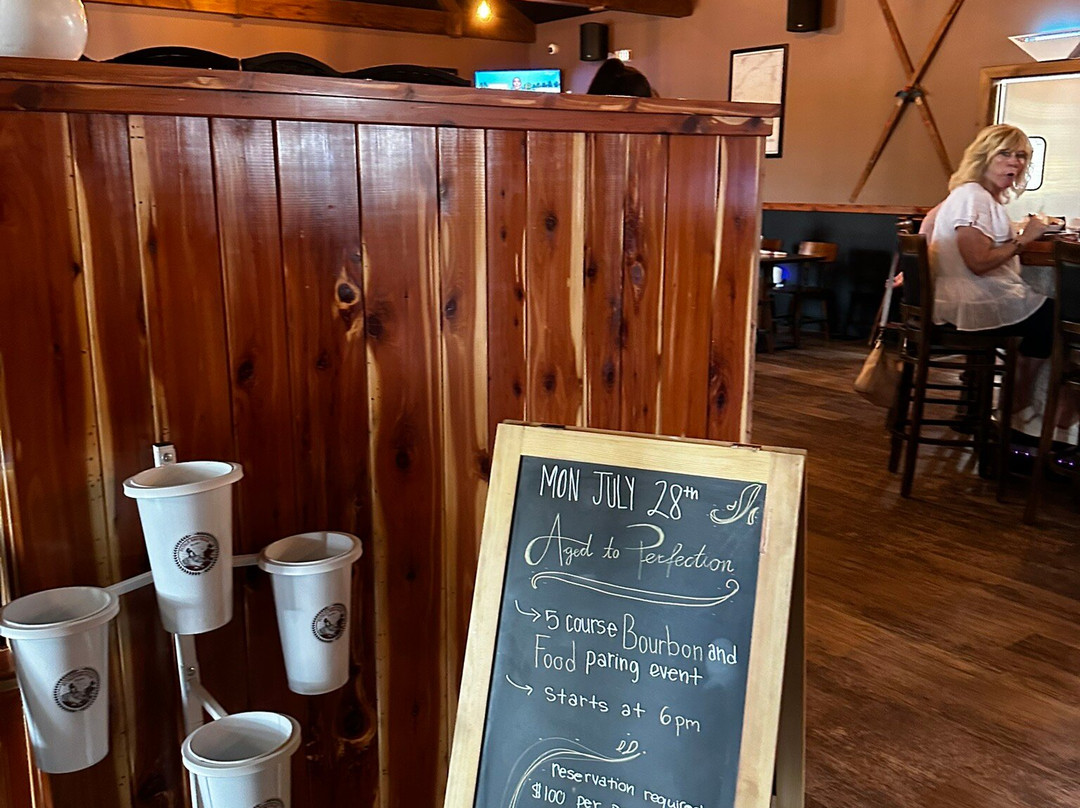 MON JULY 28th
Aged to Perfection
5 course Bourbon and
Food paring event
starts at 6pm
reservation required
$100 per